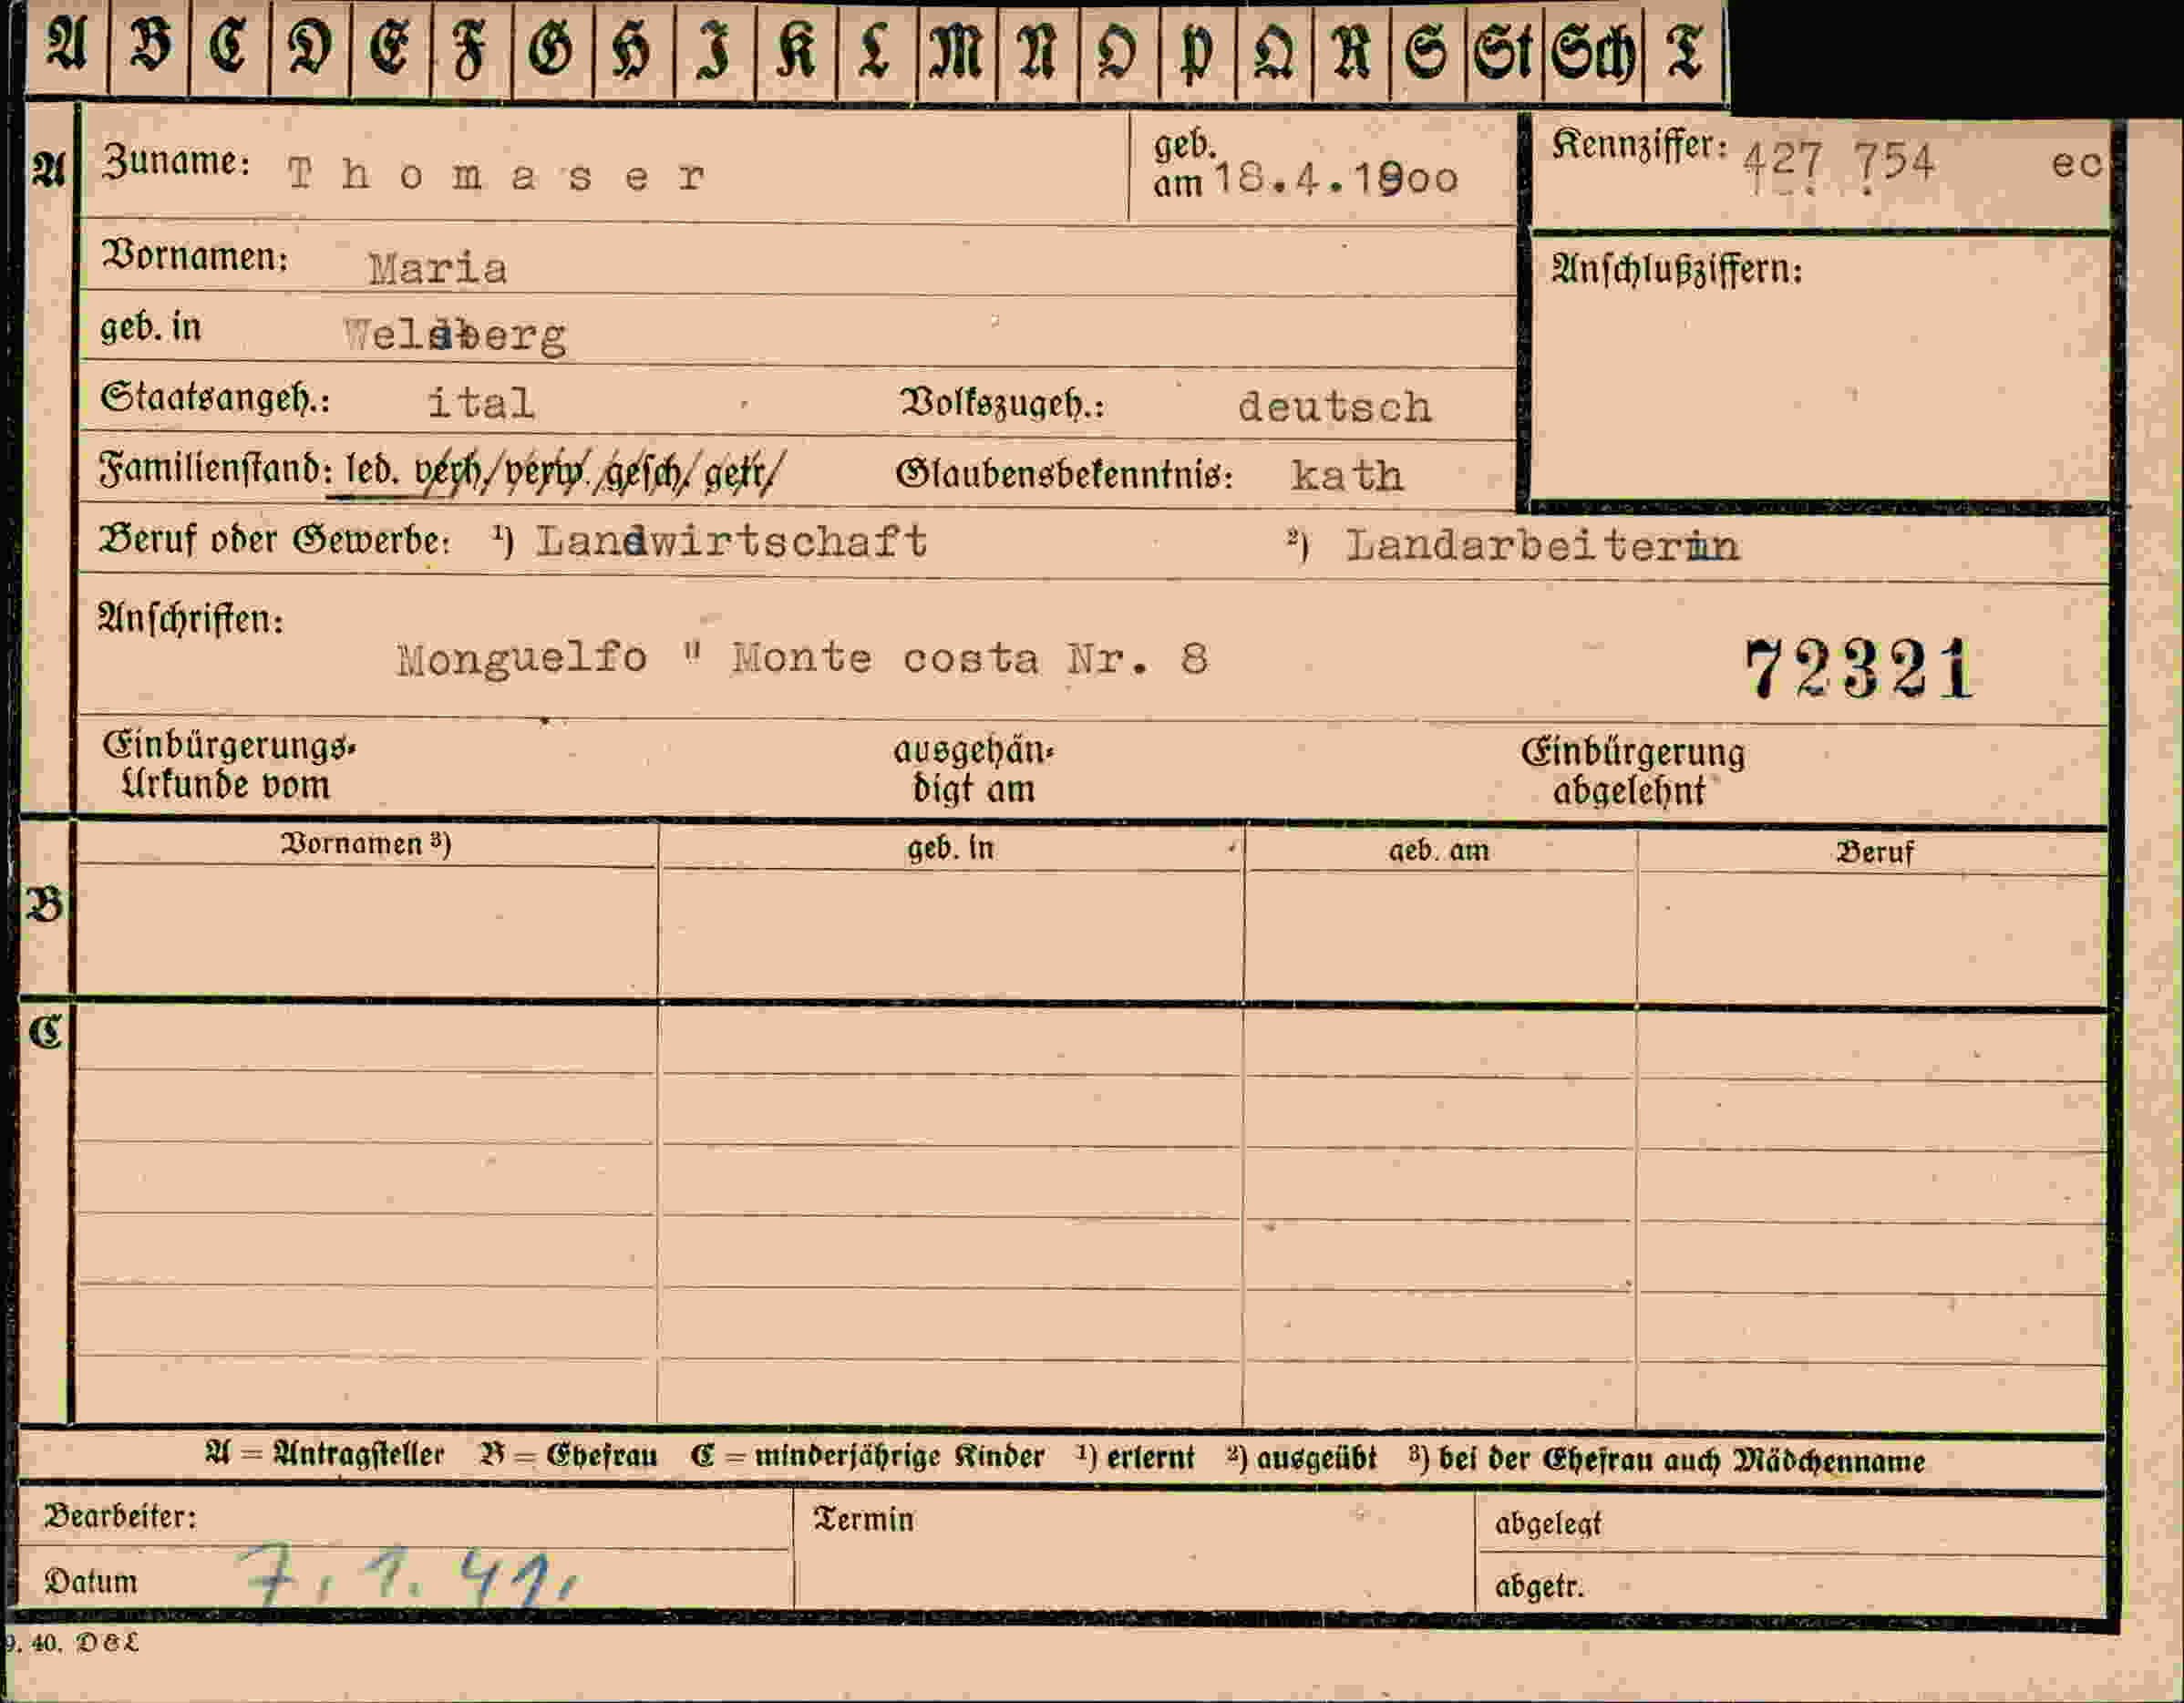 A B C D E F G H I K L M N O P Q R S St Sch T
A Zuname: Thomaser geb. am 18.4.1900 Kennziffer: 427 754 ec
Vornamen: Maria Anschlußziffern:
geb. in Welsberg
Staatsangeh.: ital Volkszugeh.: deutsch
Familienstand: led. verh/verw./gesch/getr/ Glaubensbekenntnis: kath
Beruf oder Gewerbe: ¹) Landwirtschaft ²) Landarbeiterin
Anschriften:
Monguelfo " Monte costa Nr. 8 72321
Einbürgerungs- ausgehän- Einbürgerung
Urkunde vom digt am abgelehnt
Vornamen ³) geb. in geb. am Beruf
B
C
A = Antragsteller B = Ehefrau C = minderjährige Kinder ¹) erlernt ²) ausgeübt ³) bei der Ehefrau auch Mädchenname
Bearbeiter: Termin abgelegt
Datum 7.1.41. abgetr.
9. 40. DEL